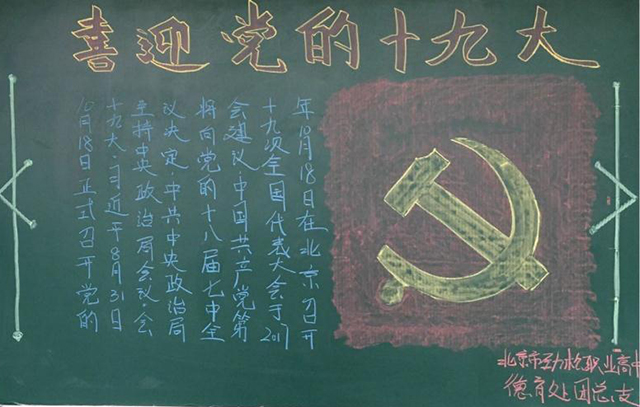 喜迎党的十九大
10月18日正式召开党的
十九大。习近平8月31日
主持中央政治局会议会
议决定,中共中央政治局
将向党的十八届七中全
会建议中国共产党第
十九次全国代表大会于2017
年10月18日在北京召开
北京市劲松职业高中
德育处团总支